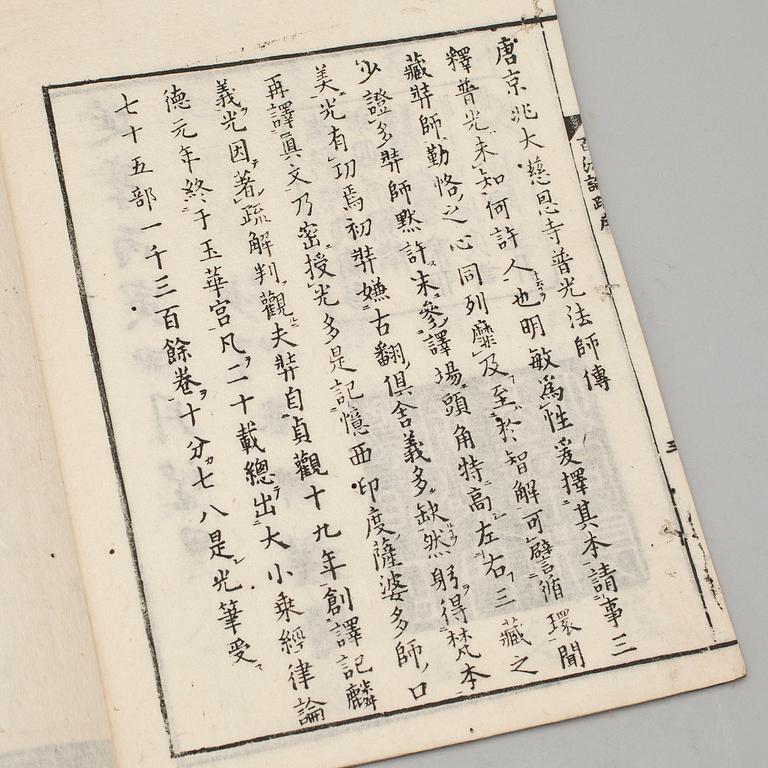 唐京兆大慈恩寺普光法師傳
釋普光未知何許人也明敏爲性爰擇其木請事三
藏奘師勤恪之心同列靡及至於智解可譬循環聞
少證多奘師默許末參譯場頭角特高左右三藏之
美光有功焉初奘嫌古翻俱舍義多缺然躬得梵本
再譯眞文乃密授光多是記憶西印度薩婆多師口
義光因著疏解判觀夫奘自貞觀十九年創譯記麟
德元年終于玉華宮凡二十載總出大小乘經律論
七十五部一千三百餘卷十分七八是光筆受
百法論疏序
三